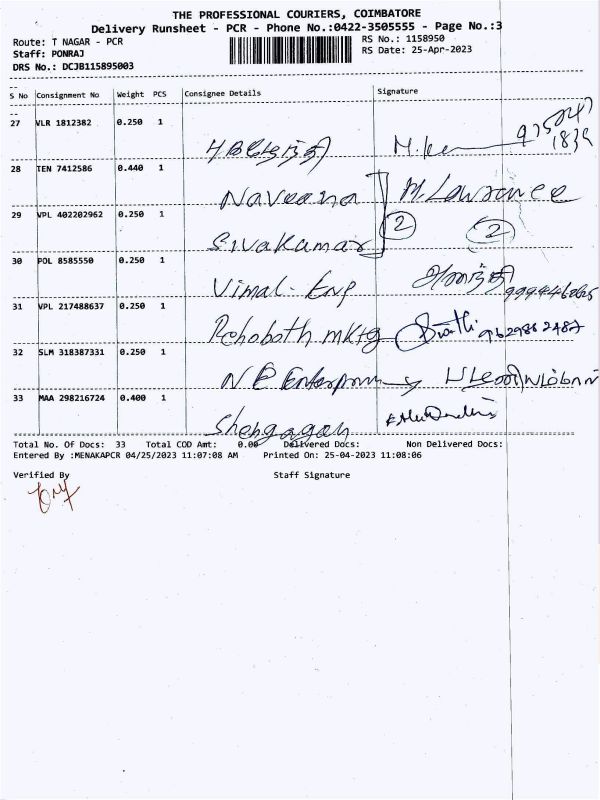 THE PROFESSIONAL COURIERS, COIMBATORE
Delivery Runsheet - PCR - Phone No.:0422-3505555 - Page No.:3
Route: T NAGAR - PCR RS No.: 1158950
Staff: PONRAJ RS Date: 25-Apr-2023
DRS No.: DCJB115895003
S No Consignment No Weight PCS Consignee Details Signature
27 VLR 1812382 0.250 1
28 TEN 7412586 0.440 1
Naveena M.Lawrance
29 VPL 402202962 0.250 1
Sivakumar 2 2
30 POL 8585550 0.250 1
Vimal - Eng ஆனந்தி
31 VPL 217488637 0.250 1
Rehoboth mktg 9629862487
32 SLM 318387331 0.250 1
N E Enterprises
33 MAA 298216724 0.400 1
Shengagan
Total No. Of Docs: 33 Total COD Amt: 0.00 Delivered Docs: Non Delivered Docs:
Entered By :MENAKAPCR 04/25/2023 11:07:08 AM Printed On: 25-04-2023 11:08:06
Verified By Staff Signature